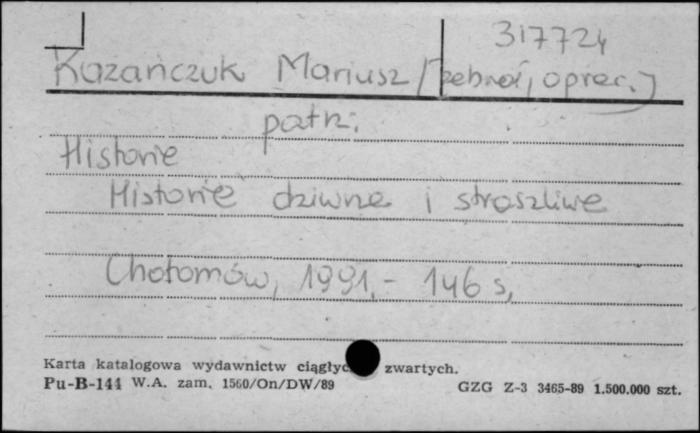 317724
Kazańczuk Mariusz /zebrał, oprac./
patrz:
Historie
Historie dziwne i straszliwe
Chotomów, 1991.- 146 s,
Karta katalogowa wydawnictw ciągłyc zwartych.
Pu-B-144 W.A. zam. 1560/On/DW/89 GZG Z-3 3465-89 1.500.000 szt.